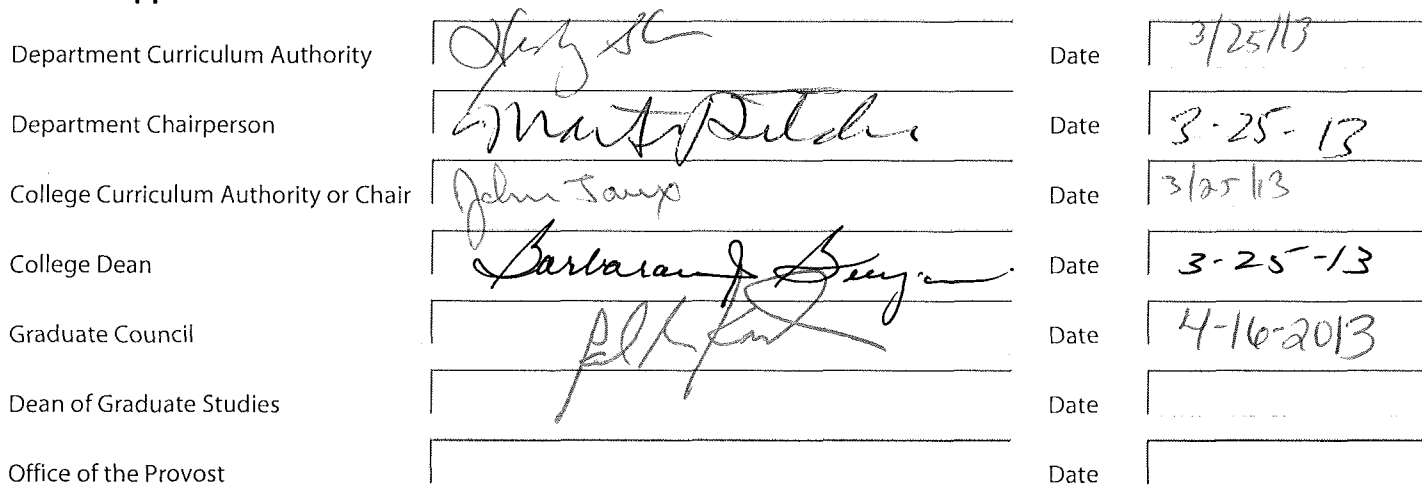 Department Curriculum Authority Date 3/25/13
Department Chairperson Date 3-25-13
College Curriculum Authority or Chair John Date 3/25/13
College Dean Date 3-25-13
Graduate Council Date 4-16-2013
Dean of Graduate Studies Date
Office of the Provost Date